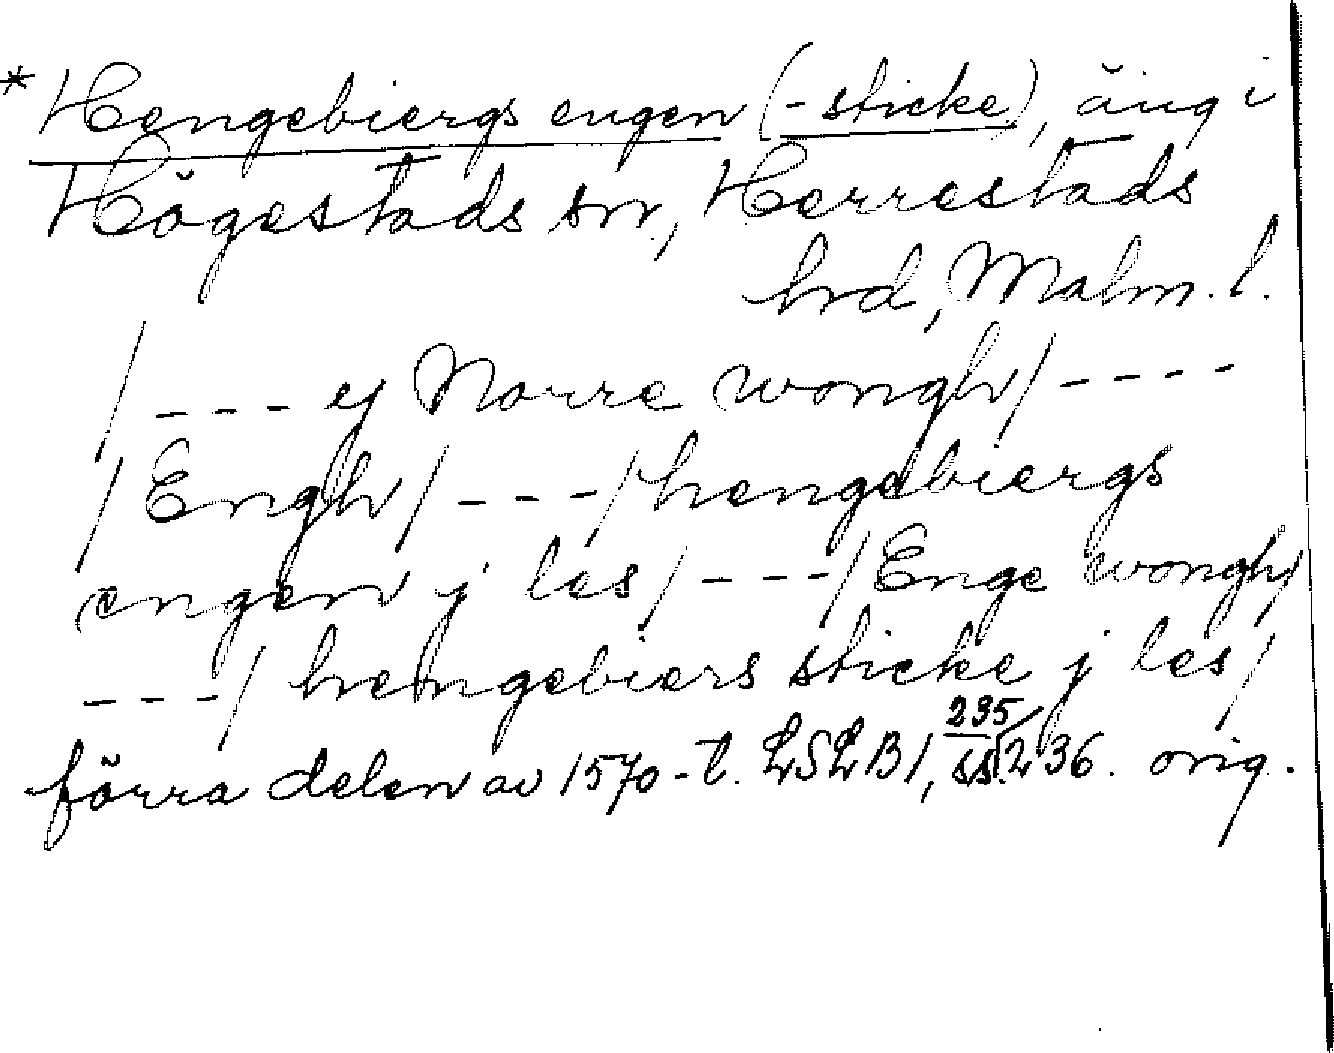 * Hengebiergs engen (-sticke), äng i
Högestads sn, Herrestads
hrd, Malm. l.
/ - - - ej Norre wongh / - - - -
/ Engh / - - - / hengebiergs
engen j les / - - - / Enge wongh /
- - - / hengebiers sticke j les /
förra delen av 1570-t. LSLB 1, ss. 235/236. orig.